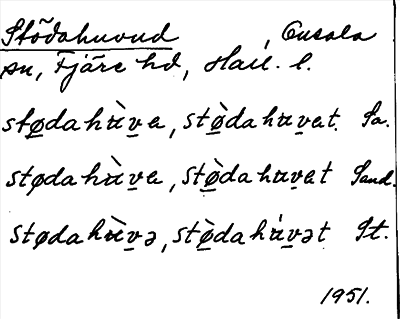 Stödahuvud, Onsala
sn, Fjäre hd, Hall. l.
stø̱dahʉ̀v̱e, stø̱̀dahʉv̱et. Sa.
stødahʉ̀v̱e, stø̱̀dahʉv̱et Sand.
stødahʉ̀v̱ə, stø̱̀dahʉ́v̱ət St.
1951.